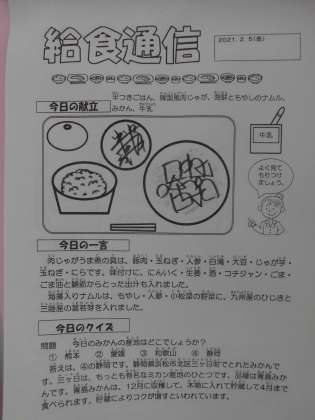 給食通信
2021. 2. 5(金)
今日の献立
平つきごはん、韓国風肉じゃが、海藻ともやしのナムル、
みかん、牛乳
牛乳
よく見て
もりつけ
ましょう。
今日の一言
・玉ねぎ・人参・白滝・大豆・じゃが芋・
玉ねぎ・にらです。味付けに、にんにく・生姜・酒・コチジャン・ごま・
ごま油と
海藻入りナムルは、もやし・人参・小松菜の野菜に、九州産のひじきと
三陸産の
今日のクイズ
問題 今日のみかんの産地はどこでしょうか?
① 熊本 ② 愛媛 ③ 和歌山 ④ 静岡
答えは、④の静岡です。静岡県浜松市北区三ヶ日町でとれたみかんで
す。三ケ日は、もっとも有名なミカン産地のひとつです。品種は青島みか
んです。青島みかんは、12月に収穫して、木箱に入れて貯蔵して4月まで
食べられます。貯蔵によりコクが増すといわれています。